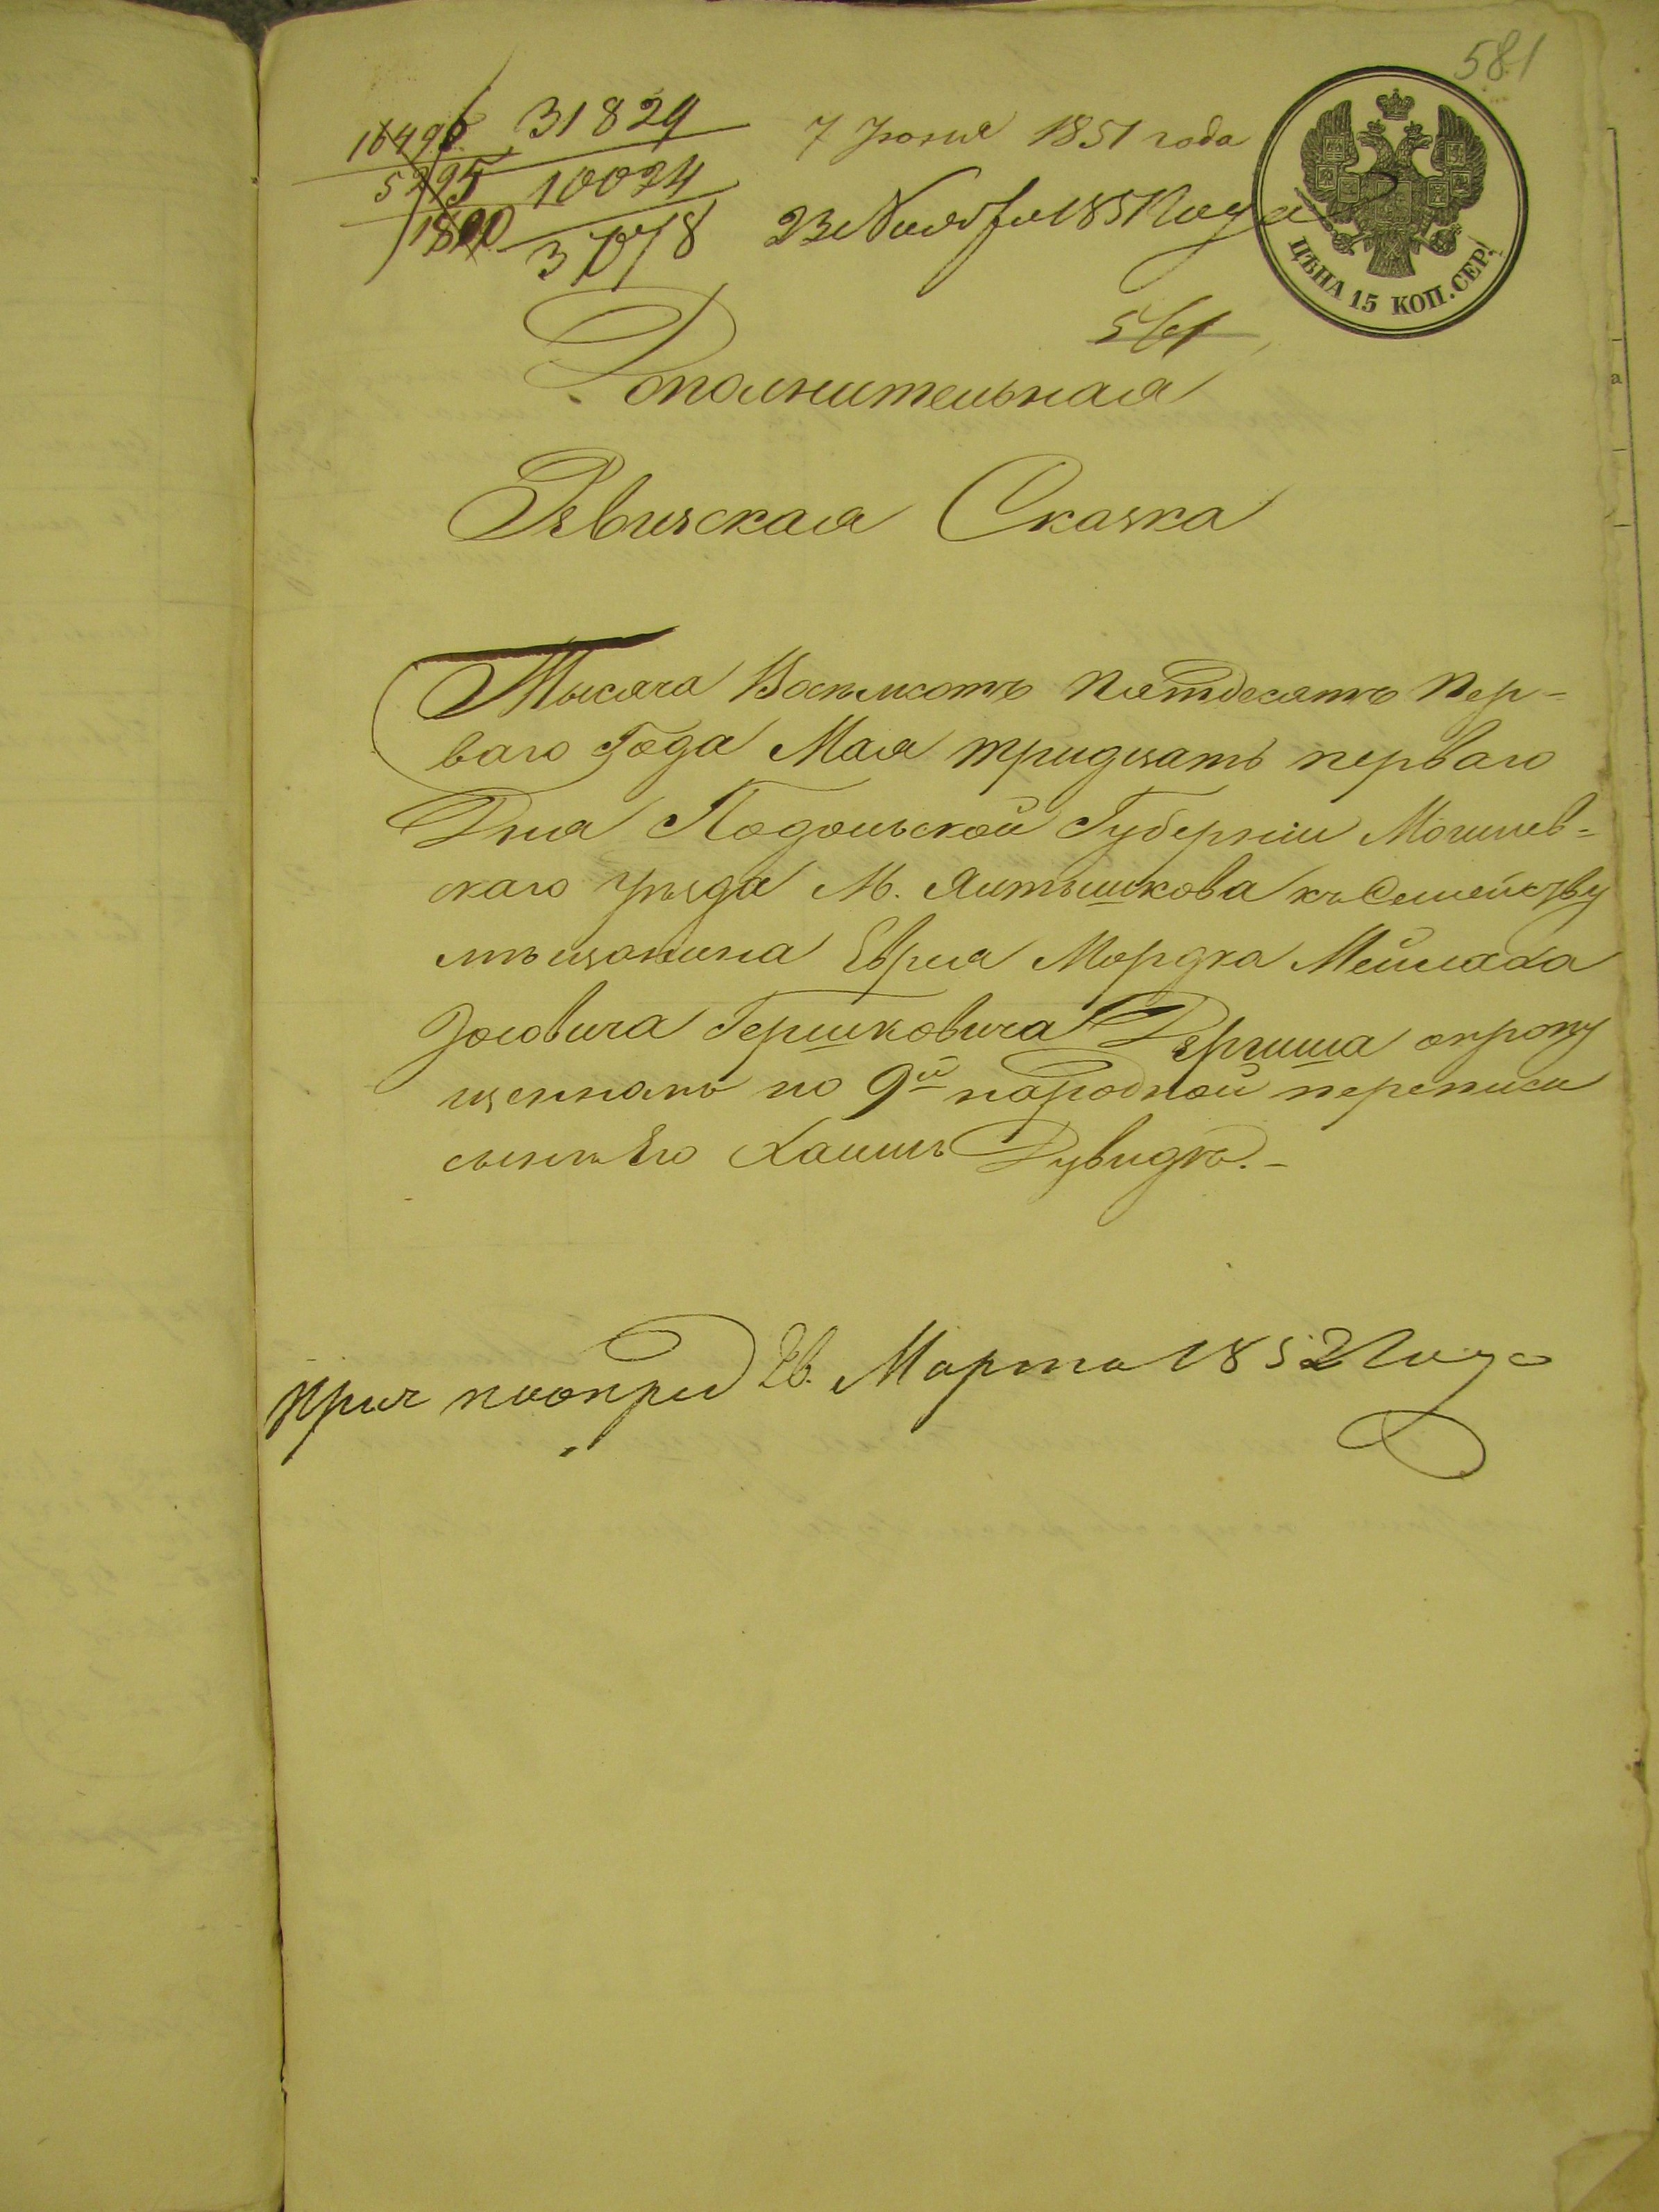 581
16496 31829
5295 10024
1800 3078
7 Июня 1851 года
23 Ноября 1851 Года
ЦѢНА 15 КОП. СЕР.
561
Дополнительная
Ревизская Сказка
Тысяча Восемьсотъ пятдесятъ пер-
ваго Года Мая тридцать перваго
Дня Подольской Губерніи Могилев-
скаго уѣзда М. Ялтышкова къ Семейству
мѣщанина Еврея Мордка Мейлаха
Гершковича опропу
щенномъ по 9й народной переписи
сынѣ Его Хаимъ Дувидѣ.-
Марта 1852 Года